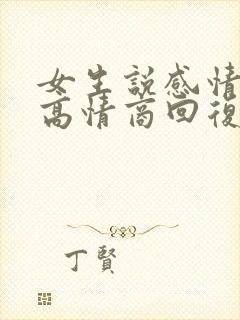 女生説感情
高情商回復
丁賢